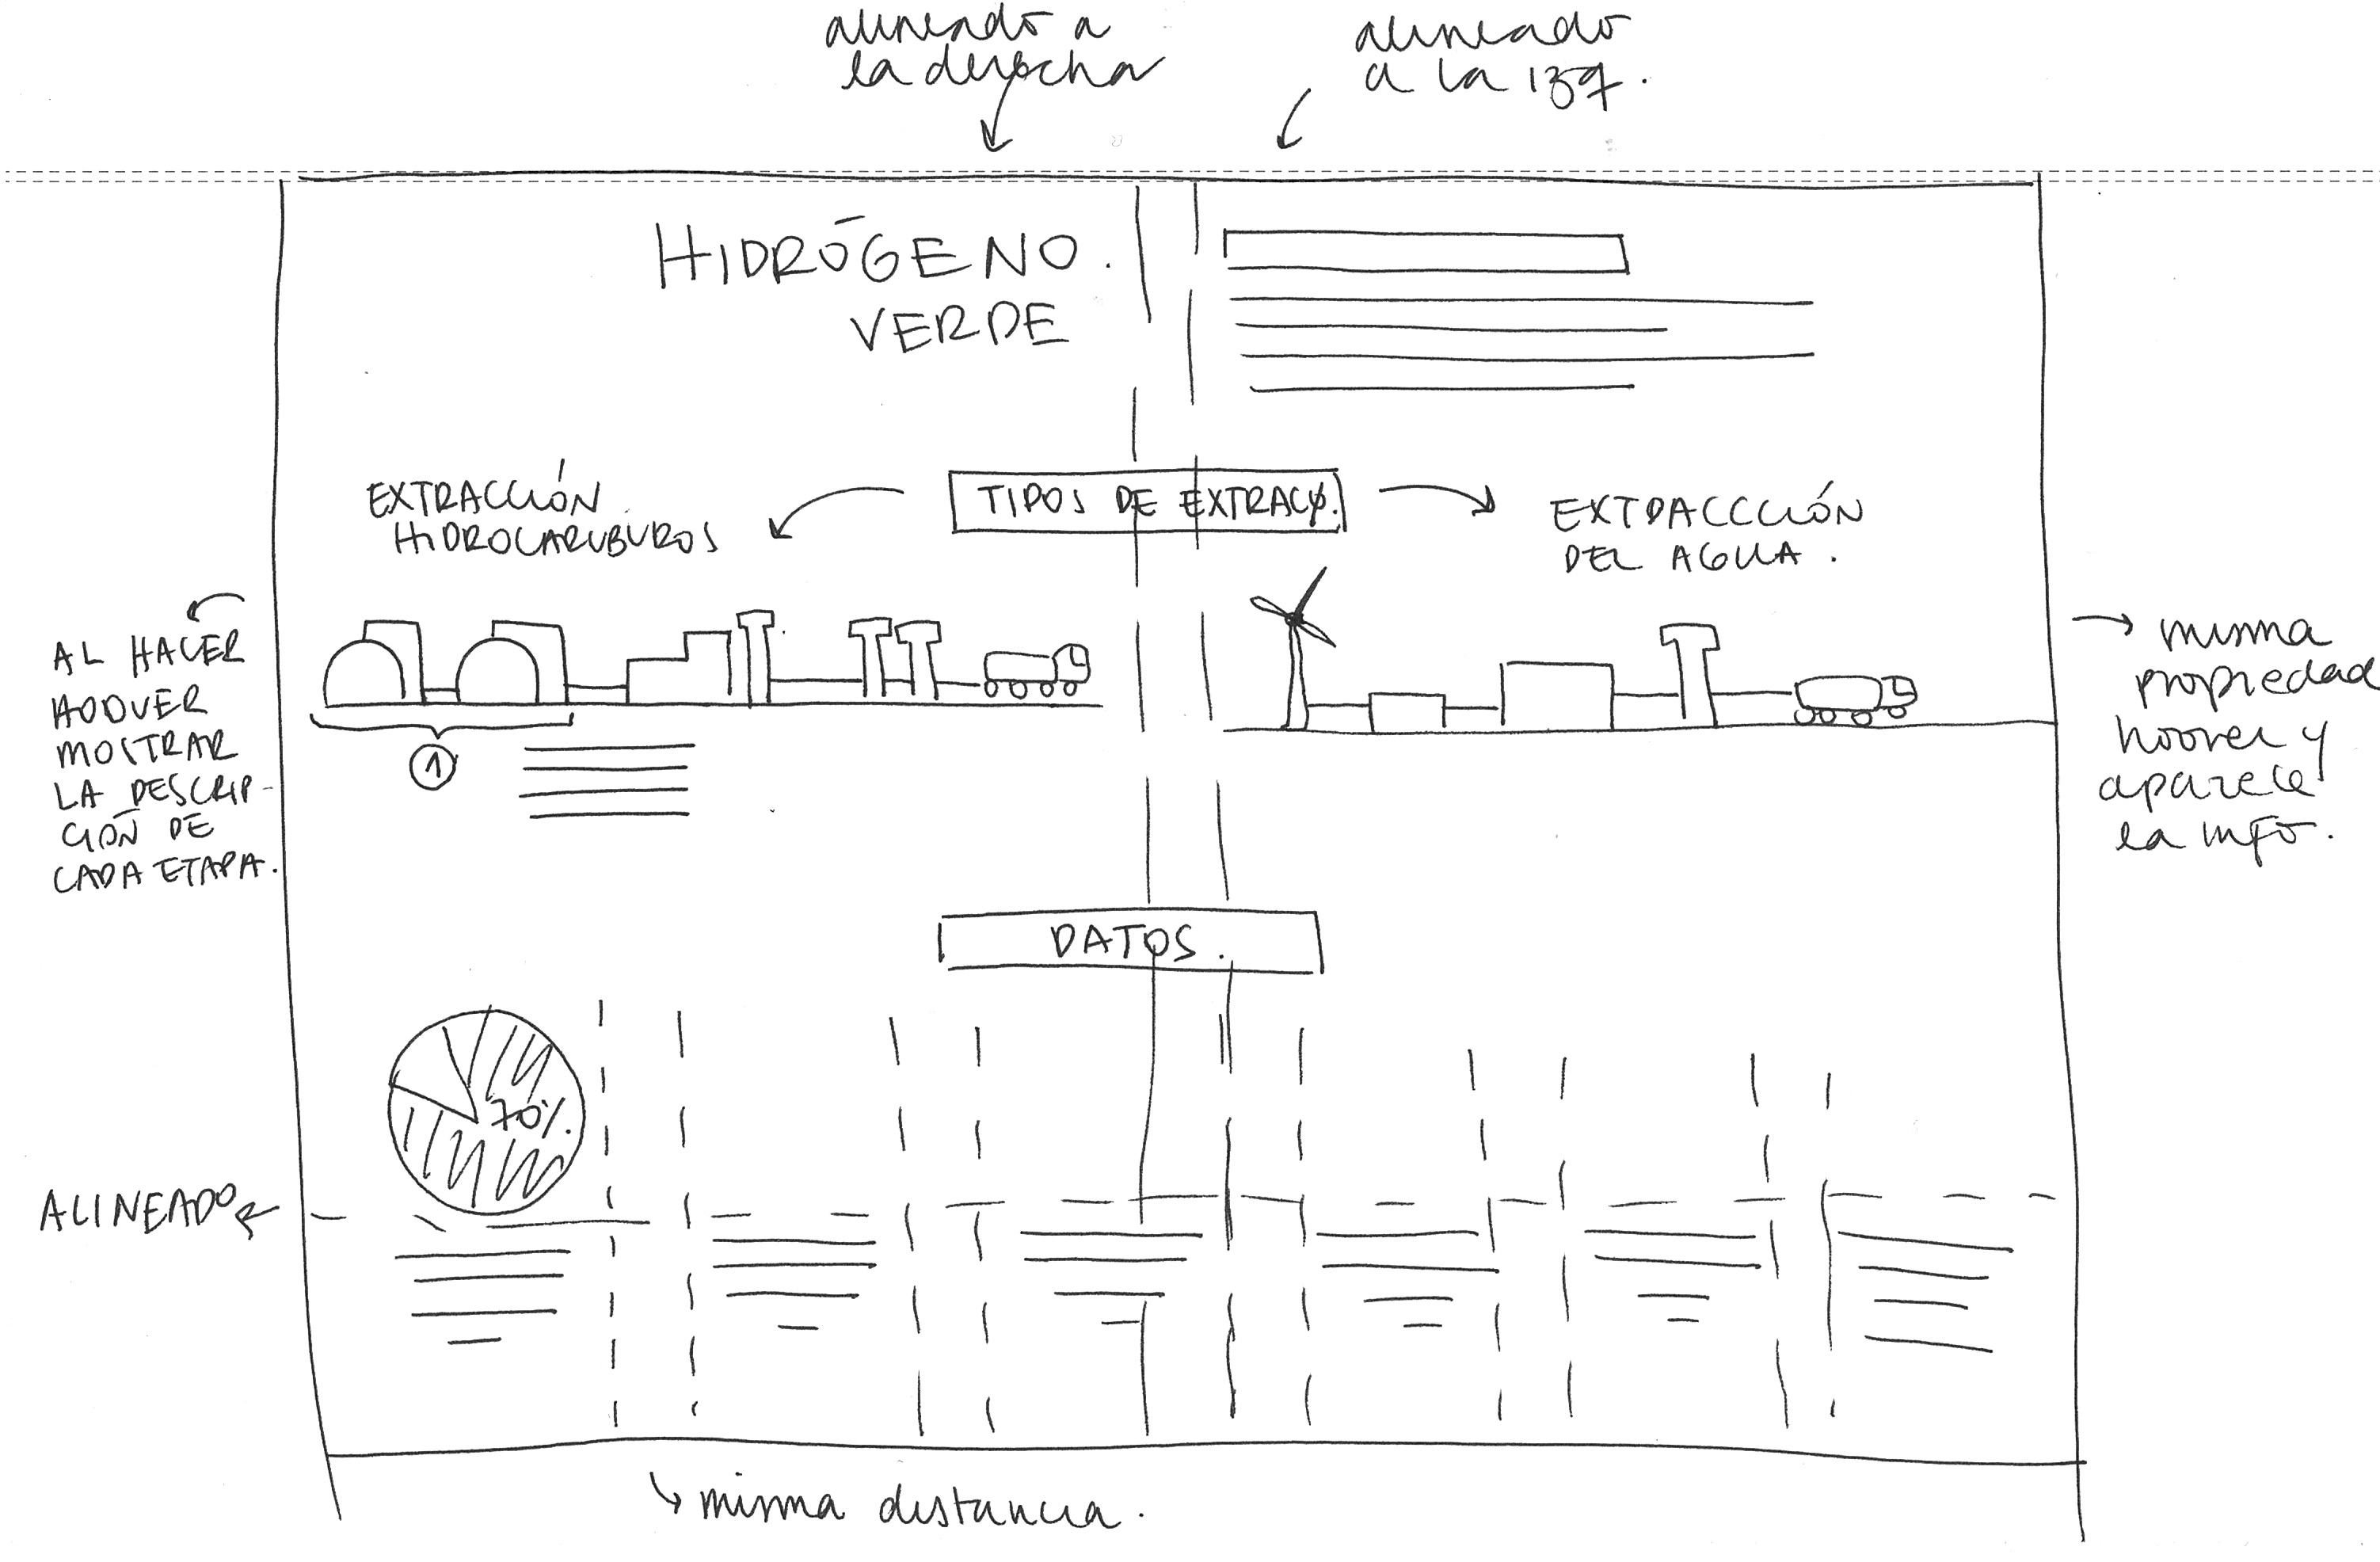 alineado a
la derecha
alineado
a la izq.
HIDRÓGENO.
VERDE
TIPOS DE EXTRACÇ.
EXTRACCIÓN
HIDROCARUBUROS
EXTDACCCIÓN
DEL AGUA.
AL HACER
HOOVER
MOSTRAR
LA DESCRIP-
CIÓN DE
CADA ETAPA.
misma
propiedad
hoover y
aparece
la info.
1
DATOS.
70%.
ALINEADO
misma distancia.